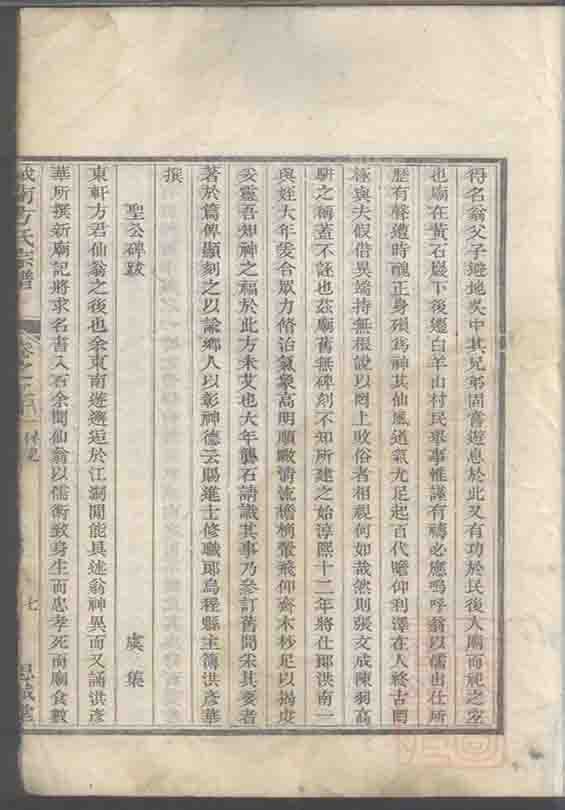 得名翁父子避地吳中其兄弟固嘗遊息於此又有功於民後人廟而祀之宐
也廟在黃石巖下後遷白羊山村民奉事惟謹有禱必應嗚呼翁以儒出仕所
歷有聲遭時醜正身殞爲神其仙風道氣尤足起百代瞻仰利澤在人終古罔
極與夫假借異端持無根說以罔上敗俗者相視何如哉然則張文成陳羽高
騈之稱蓋不誣也茲廟舊無碑刻不知所建之始淳熙十二年將仕郎洪南一
與姪大年爰合眾力脩治氣象高明順敞淸流襜楠聲飛仰齊木杪足以揭虔
妥靈吾知神之福於此方未艾也大年礱石請識其事乃參訂舊聞采其要者
著於篇俾顯刻之以諭鄉人以彰神德云賜進士修職郎烏程縣主簿洪彥華
撰
聖公碑跋 虞集
東軒方君仙翁之後也余東南遊邂逅於江湖間能具述翁神異而又誦洪彥
華所撰新廟記將求名書入石余聞仙翁以儒術致身生而忠孝死而廟食數
方氏宗譜 卷之 七 思誠堂